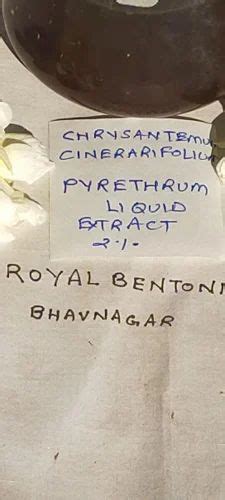 CHRYSANTEMU
CINERARIFOLIUM
PYRETHRUM
LIQUID
EXTRACT
2.1.
ROYAL BENTONI
BHAVNAGAR